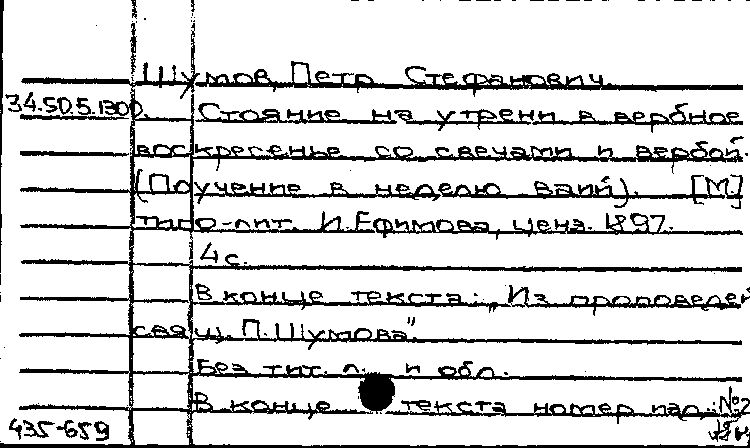 Шумов, Петр Стефанович.
34.50.5.1300. Стояние на утрени в вербное
воскресенье со свечами и вербой.
(Поучение в неделю ваий). [М.]
типо-лит. И. Ефимова, ценз. 1897.
4 с.
В конце текста: „Из проповедей
свящ. П. Шумова".
Без тит. л. и обл.
В конце текста номер изд.: №2
435-659